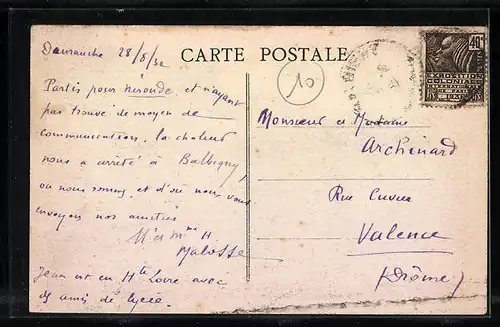 Dimanche 28/8/32
CARTE POSTALE
Partis pour Néronde et n'ayant
pas trouvé de moyen de
communication, la chaleur
nous a arrêté à Balbigny,
où nous sommes et d'où nous vous
envoyons nos amitiés
M et Mme H
Malosse
Jean est en Hte Loire avec
des amis de lycée.
10
40c
EXPOSITION
COLONIALE
INTERNATIONALE
PARIS 1931
Monsieur et Madame
Archinard
Rue Cuvier
Valence
(Drôme)